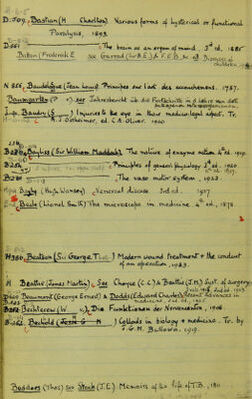 D.507. Bastian (H Charlton) Various forms of hysterical or functional
Paralysis, 1893
D551 The brain as an organ of mind. 3rd ed. 1885
Batten (Frederick E see Garrod (A.E.) & F.E.B. Diseases of
children
N 856 Baudelocque (Jean Louis) Principes sur l'art des accouchemens. 1787.
Baumgarten (P see Jahresbericht üb. die Fortschritte
Baudry (S Injuries to the eye in their medico-legal aspect. Tr.
A.J. Ostheimer, ed. C.A. Oliver. 1900
B220 Bayliss (Sir William Maddock) The nature of enzyme action
Principles of general physiology 1920
The vaso motor system, 1923.
Bayly (Hugh Wansey) Venereal disease 3rd ed. 1927.
Beale (Lionel Smith) The microscope in medicine 4th ed., 1878.
H350 Beatson (Sir George Thos.) Modern wound treatment & the conduct
of an operation, 1923.
H Beattie (James Martin) See Choyce (C.C.) & Beattie (J.M.) Syst. of surgery
Beaumont (George Ernest) & Dodds (Edward Charles) Recent advances in
medicine
Bechterew (W v.) Die Funktionen der Nervencentra, 1908
Bechhold Colloids in biology & medicine. Tr. by
J.G.M. Bullowa. 1919.
Beddoes (Thos) see Stock (J.E.) Memoirs of the life of T.B., 1811